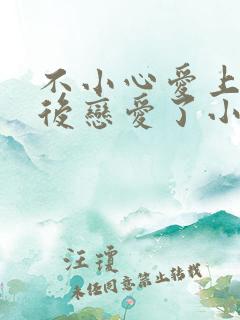 不小心愛上
後戀愛了小
汪瓊
未经同意禁止转载